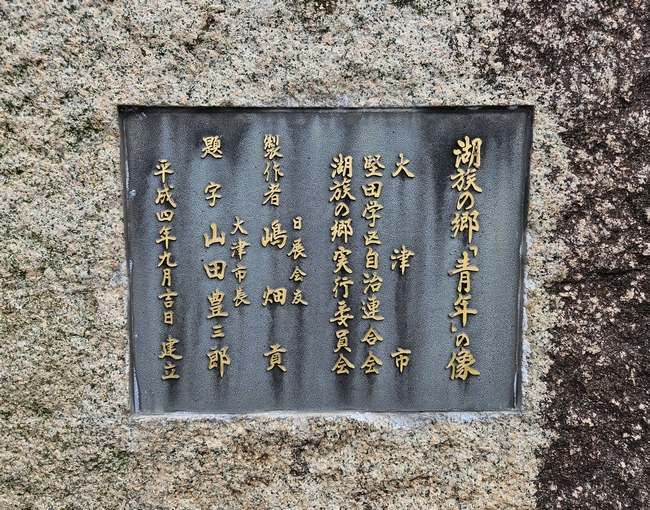 湖族の郷「青年」の像
大津市
堅田学区自治連合会
湖族の郷実行委員会
日展会友
製作者 嶋畑貢
大津市長
題字 山田豊三郎
平成四年九月吉日 建立